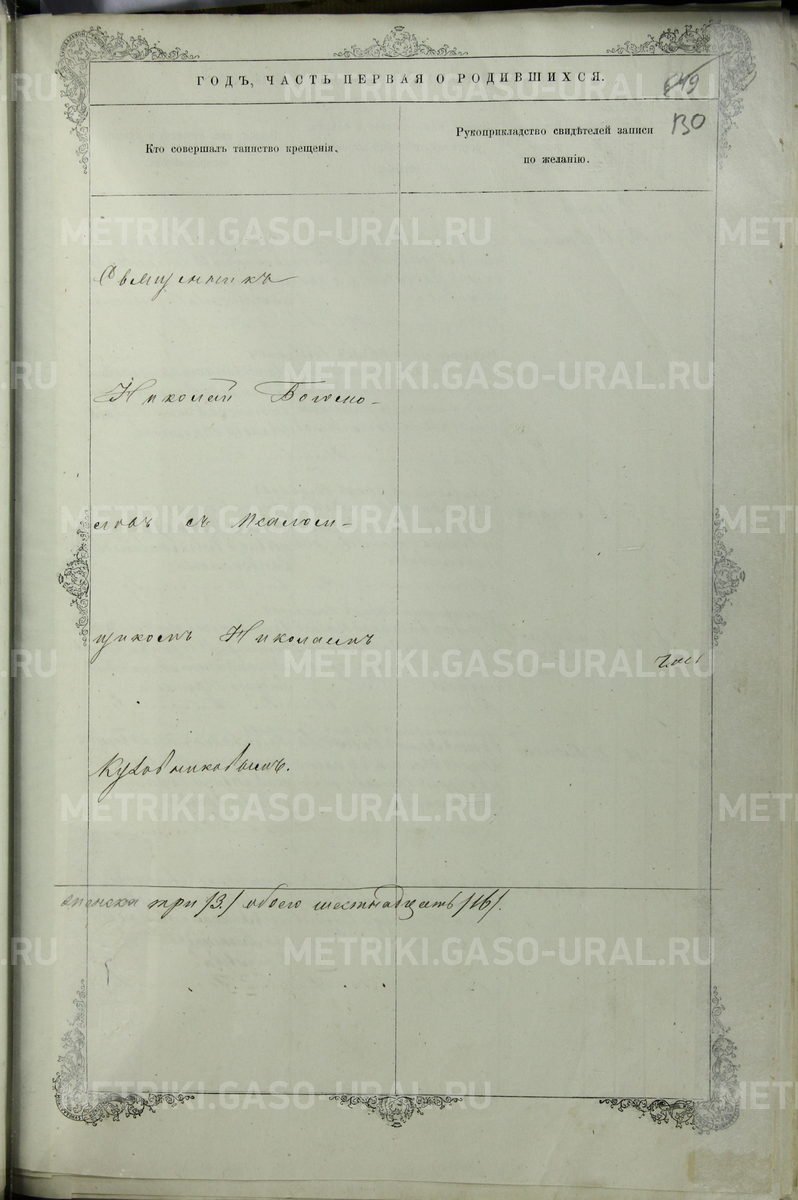 ГОДЪ, ЧАСТЬ ПЕРВАЯ О РОДИВШИХСЯ.
849
130
Кто совершалъ таинство крещенія.
Рукоприкладство свидѣтелей записи
по желанію.
Священникъ
Николай Богомо-
ловъ съ псалом-
щикомъ Николаемъ
Кудовниковымъ.
женска три /3/ обоего шестнадцать /16/.
METRIKI.GASO-URAL.RU